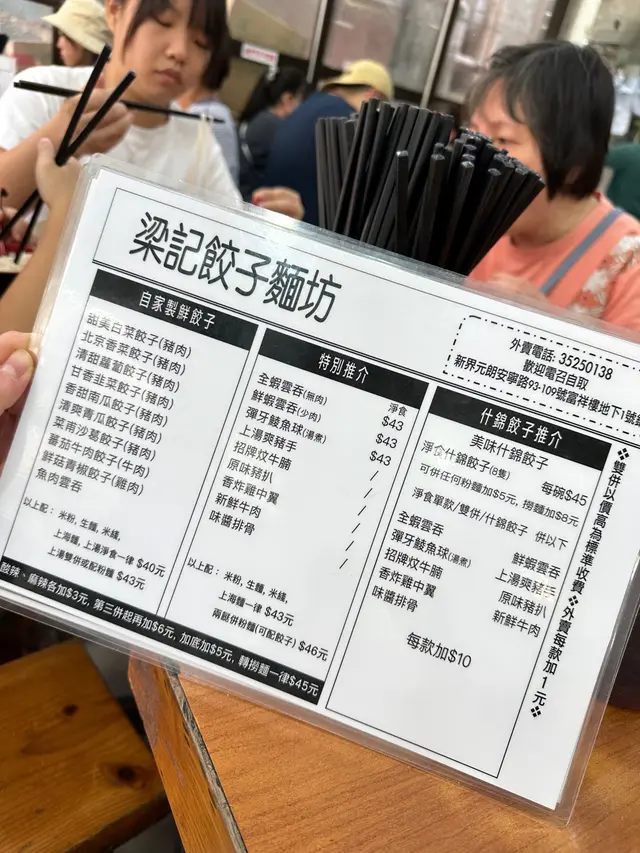 梁記餃子麵坊
外賣電話: 35250138
歡迎電召自取
新界元朗安寧路93-109號富祥樓地下1號
自家製鮮餃子
甜美白菜餃子(豬肉)
北京香菜餃子(豬肉)
清甜蘿蔔餃子(豬肉)
甘香韭菜餃子(豬肉)
香甜南瓜餃子(豬肉)
清爽青瓜餃子(豬肉)
菜甫沙葛餃子(豬肉)
蕃茄牛肉餃子(牛肉)
鮮菇青椒餃子(雞肉)
魚肉雲吞
以上配： 米粉, 生麵, 米綫,
上海麵, 上湯淨食一律 $40元
上湯雙併或配粉麵 $43元
特別推介
淨食
全蝦雲吞(無肉) $43
鮮蝦雲吞(少肉) $43
彈牙鯪魚球(湯煮) $43
上湯爽豬手 /
招牌炆牛腩 /
原味豬扒 /
香炸雞中翼 /
新鮮牛肉 /
味醬排骨 /
以上配： 米粉, 生麵, 米綫,
上海麵一律 $43元
兩餸併粉麵(可配餃子) $46元
酸辣、麻辣各加$3元, 第三併起再加$6元, 加底加$5元, 轉撈麵一律$45元
什錦餃子推介
美味什錦餃子
淨食什錦餃子(8隻) 每碗$45
可併任何粉麵加$5元, 撈麵加$8元
淨食單款/雙併/什錦餃子 併以下
全蝦雲吞 鮮蝦雲吞
彈牙鯪魚球(湯煮) 上湯爽豬手
招牌炆牛腩 原味豬扒
香炸雞中翼 新鮮牛肉
味醬排骨
每款加$10
❖雙併以價高為標準收費❖外賣每款加1元❖